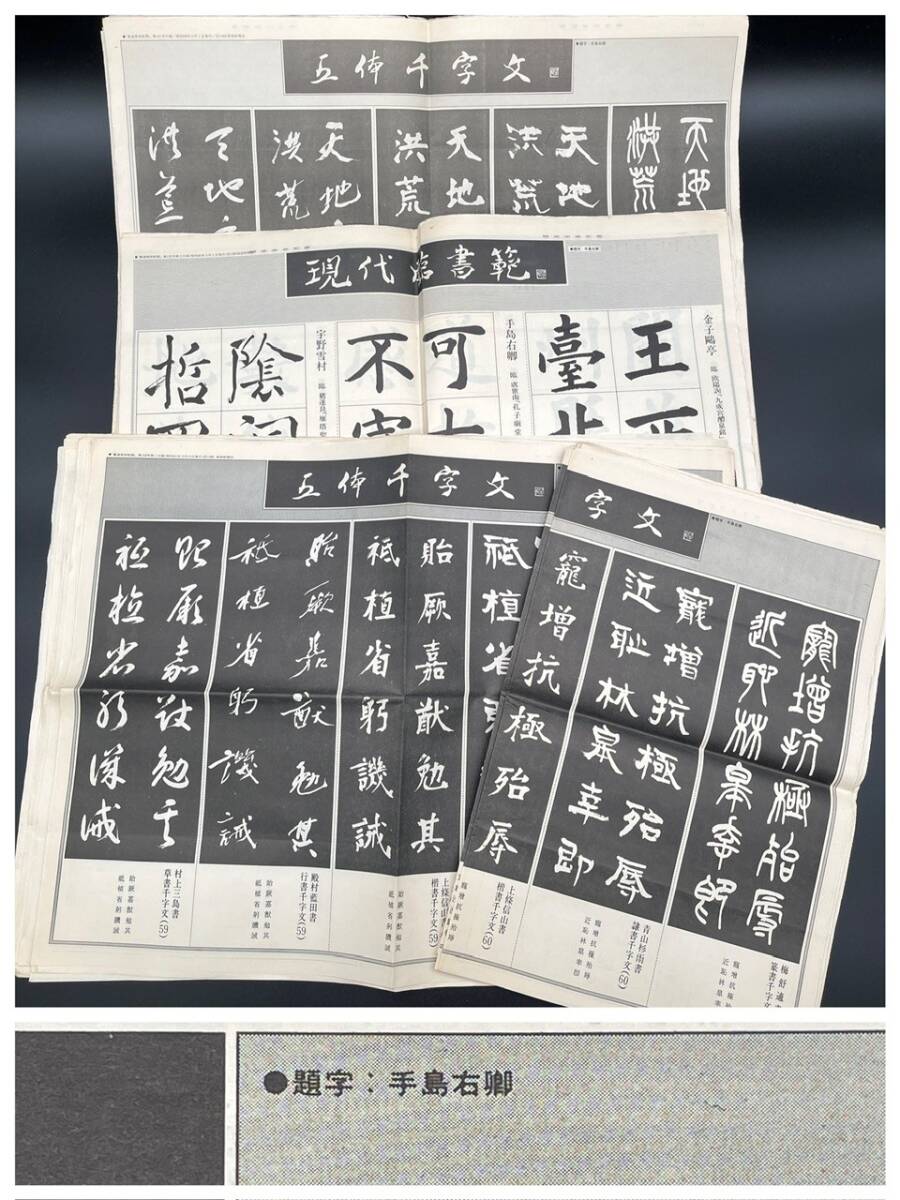 五体千字文
天地
洪荒
天地
洪荒
天地
洪荒
天地
洪荒
天地
洪荒
現代臨書範
●題字：手島右卿
金子鷗亭
王
臺
手島右卿
可
不
宇野雪村
陰
哲
五体千字文
貽厥嘉猷勉其
祗植省躬譏誡
上條信山書
楷書千字文(59)
貽厥嘉猷勉其
祗植省躬譏誡
殿村藍田書
行書千字文(59)
貽厥嘉猷勉其
祗植省躬譏誡
貽厥嘉猷勉其
祗植省躬譏誡
村上三島書
草書千字文(59)
貽厥嘉猷勉其
祗植省躬譏誡
字文
寵増抗極殆辱
近恥林皐幸即
寵増抗極殆辱
近恥林皐幸即
青山杉雨書
隷書千字文(60)
寵増抗極殆辱
近恥林皐幸即
寵増抗極殆辱
上條信山書
楷書千字文(60)
●題字：手島右卿